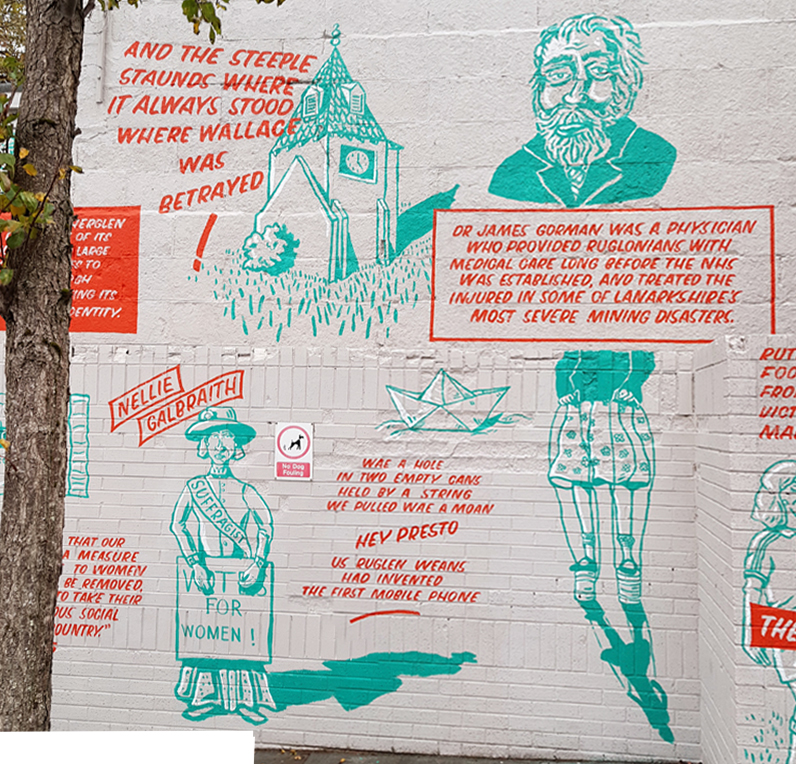 AND THE STEEPLE
STAUNDS WHERE
IT ALWAYS STOOD
WHERE WALLACE
WAS
BETRAYED
!
OF ITS
LARGE
TO
ITS
DR JAMES GORMAN WAS A PHYSICIAN
WHO PROVIDED RUGLONIANS WITH
MEDICAL CARE LONG BEFORE THE NHS
WAS ESTABLISHED, AND TREATED THE
INJURED IN SOME OF LANARKSHIRE'S
MOST SEVERE MINING DISASTERS.
NELLIE
GALBRAITH
SUFFRAGIST
VOTES
FOR
WOMEN!
No Dog
Fouling
WAE A HOLE
IN TWO EMPTY CANS
HELD BY A STRING
WE PULLED WAE A MOAN
HEY PRESTO
US RUGLEN WEANS
HAD INVENTED
THE FIRST MOBILE PHONE
THAT OUR
A MEASURE
TO WOMEN
BE REMOVED,
TO TAKE THEIR
SOCIAL
RUT
FOO
FRO
VICT
MA
THE